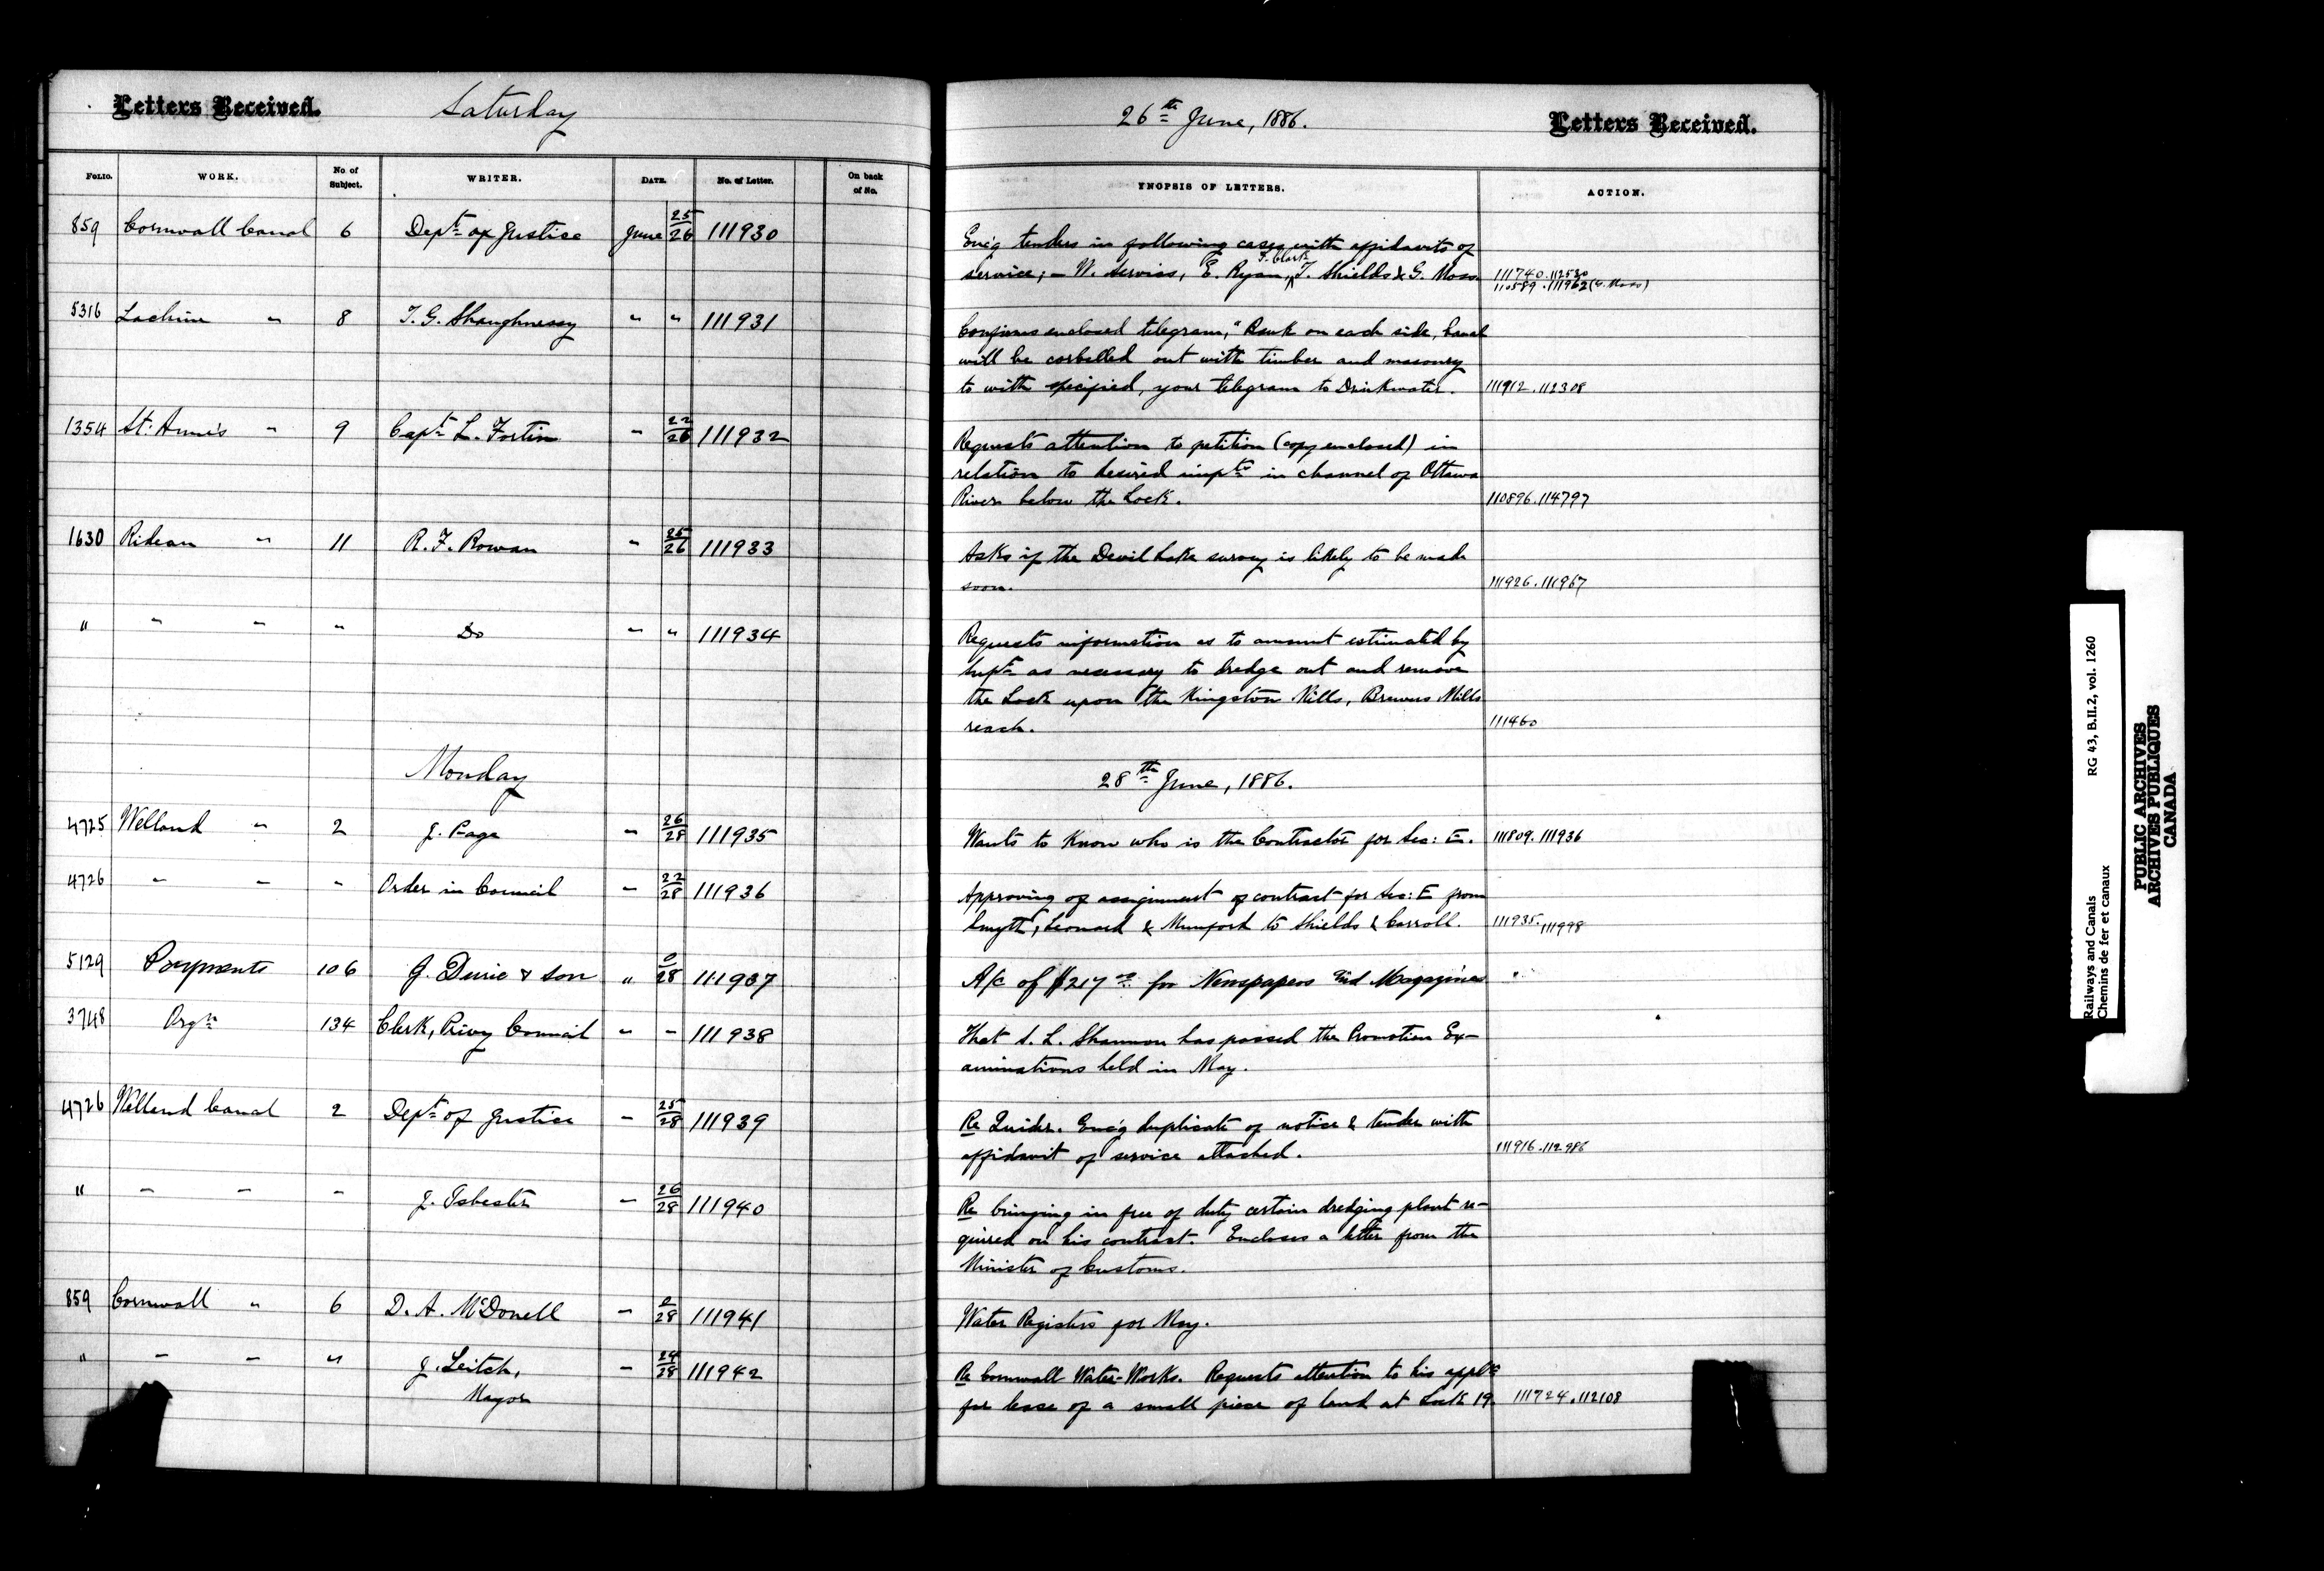 Letters Received. Saturday 26th June, 1886. Letters Received.
FOLIO. WORK. No. of Subject. WRITER. DATE. No. of Letter. On back of No. SYNOPSIS OF LETTERS. ACTION.
859 Cornwall Canal 6 Dept of Justice June 25/26 111930 Enc'g tenders in following cases with affidavits of
service; – W. Serviss, E. Ryan, F. Clark, T. Shields & G. Moss. 111740.112530
110589.111962 (G. Moss)
5316 Lachine " 8 T. G. Shaughnessy " " 111931 Confirms enclosed telegram, "Bank on each side, Canal
will be corbelled out with timber and masonry
to with specified, your telegram to Drinkwater. 111912.112308
1354 St. Anne's " 9 Capt L. Fortin " 22/26 111932 Requests attention to petition (copy enclosed) in
relation to desired impts in channel of Ottawa
River below the Lock. 110896.114797
1630 Rideau " 11 R. F. Rowan " 25/26 111933 Asks if the Devil Lake survey is likely to be made
soon. 111926.111967
" " " " Do " " 111934 Requests information as to amount estimated by
Supt as necessary to dredge out and remove
the Lock upon the Kingston Mills, Brewers Mills
reach. 111460
Monday 28th June, 1886.
4725 Welland " 2 J. Page " 26/28 111935 Wants to know who is the Contractor for Sec: E. 111809.111936
4726 " " " Order in Council " 22/28 111936 Approving of assignment of contract for Sec: E from
Smyth, Leonard & Mumford to Shields & Carroll. 111935.111998
5129 Payments 106 J. Durie & Son " 0/28 111937 A/c of $217 00 for Newspapers and Magazines "
3748 Orgn 134 Clerk, Privy Council " " 111938 That S. L. Shannon has passed the Promotion Ex-
aminations held in May.
4726 Welland Canal 2 Dept of Justice " 25/28 111939 Re Enc'g duplicate of notice & tender with
affidavit of service attached. 111916.112986
" " " " J. Isbester " 26/28 111940 Re bringing in free of duty certain dredging plant re-
quired on his contract. Encloses a letter from the
Minister of Customs.
859 Cornwall " 6 D. A. McDonell " 0/28 111941 Water Registers for May.
" " " " J. Leitch, " 24/28 111942 Re Cornwall Water-Works. Requests attention to his appltn
Mayor for lease of a small piece of land at Lock 19. 111724.112108
Railways and Canals RG 43, B.II.2, vol. 1260
Chemins de fer et canaux
PUBLIC ARCHIVES
ARCHIVES PUBLIQUES
CANADA